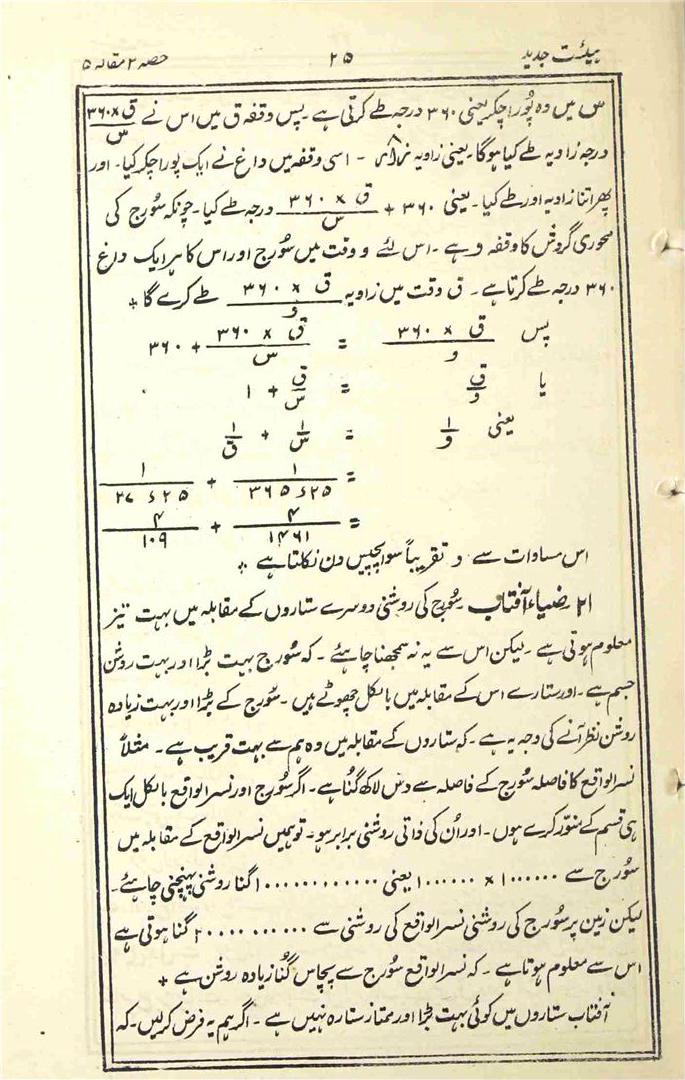 ہیئت جدید ۲۵ حصہ ۲ مقالہ ۵
س میں وہ پُورا چکر یعنی ۳۶۰ درجہ طے کرتی ہے۔ پس وقفہ ق میں اس نے ق × ۳۶۰ / س
درجہ زاویہ طے کیا ہوگا۔ یعنی زاویہ ۔ اسی وقفہ میں داغ نے ایک پورا چکر کیا۔ اور
پھر اتنا زاویہ اور طے کیا۔ یعنی ۳۶۰ + ق × ۳۶۰ / س درجہ طے کیا۔ چونکہ سُورج کی
محوری گردش کا وقفہ و ہے۔ اس لئے و وقت میں سُورج اور اس کا ہر ایک داغ
۳۶۰ درجہ طے کرتا ہے۔ ق وقت میں زاویہ ق × ۳۶۰ / و طے کرے گا +
پس ق × ۳۶۰ / و = ق × ۳۶۰ / س + ۳۶۰
یا ق / و = ق / س + ۱
یعنی ۱ / و = ۱ / س + ۱ / ق
= ۱ / ۳۶۵٫۲۵ + ۱ / ۲۷٫۲۵
= ۴ / ۱۴۶۱ + ۴ / ۱۰۹
اس مساوات سے و تقریباً سوا پچیس دن نکلتا ہے ۔
۲۱ ضیاء آفتاب سُورج کی روشنی دوسرے ستاروں کے مقابلہ میں بہت تیز
معلوم ہوتی ہے۔ لیکن اس سے یہ نہ سمجھنا چاہئے۔ کہ سُورج بہت بڑا اور بہت روشن
جسم ہے۔ اور ستارے اس کے مقابلہ میں بالکل چھوٹے ہیں۔ سُورج کے بڑا اور بہت زیادہ
روشن نظر آنے کی وجہ یہ ہے۔ کہ ستاروں کے مقابلہ میں وہ ہم سے بہت قریب ہے۔ مثلاً
نسر الواقع کا فاصلہ سُورج کے فاصلہ سے دس لاکھ گُنا ہے۔ اگر سُورج اور نسر الواقع بالکل ایک
ہی قسم کے منوّر کرے ہوں۔ اور اُن کی ذاتی روشنی برابر ہو۔ تو ہمیں نسر الواقع کے مقابلہ میں
سُورج سے ۱۰۰۰۰۰۰ × ۱۰۰۰۰۰۰ یعنی ۱۰۰۰۰۰۰۰۰۰۰۰۰ گنا روشنی پہنچنی چاہئے۔
لیکن زمین پر سُورج کی روشنی نسر الواقع کی روشنی سے ۲۰۰۰۰۰۰۰۰۰۰ گنا ہوتی ہے
اس سے معلوم ہوتا ہے۔ کہ نسر الواقع سُورج سے پچاس گُنا زیادہ روشن ہے +
آفتاب ستاروں میں کوئی بہت بڑا اور ممتاز ستارہ نہیں ہے۔ اگر ہم یہ فرض کرلیں۔ کہ